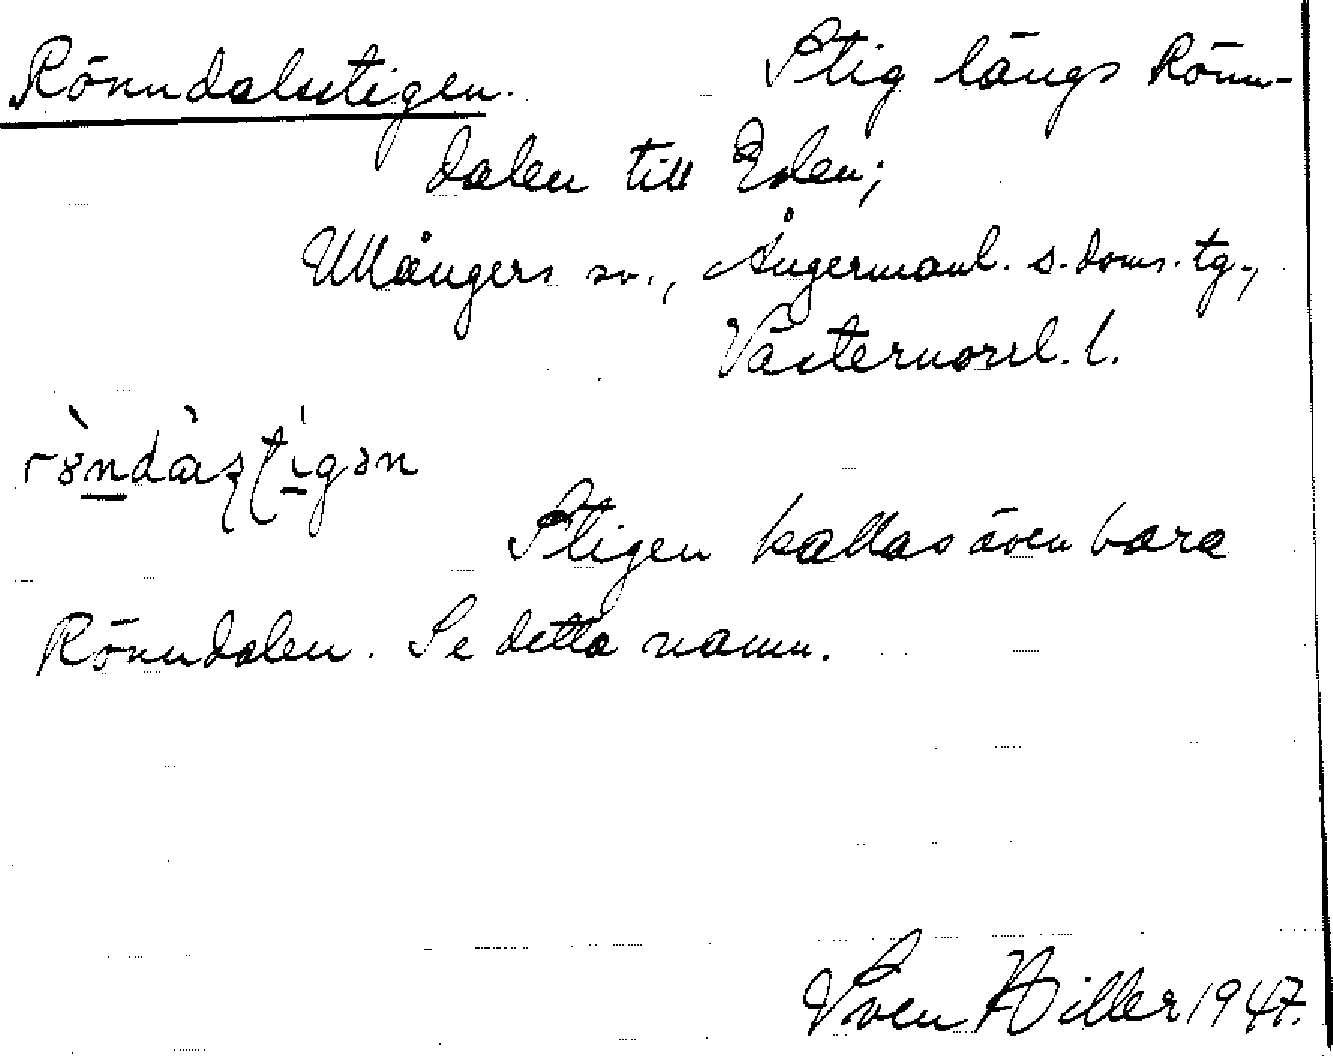 Rönndalsstigen. Stig längs Rönn-
dalen till Eden;
Ullångers sn., Ångermanl. s. doms. tg.,
Västernorrl. l.
Stigen kallas även bara
Rönndalen. Se detta namn.
Sven Hiller 1947.